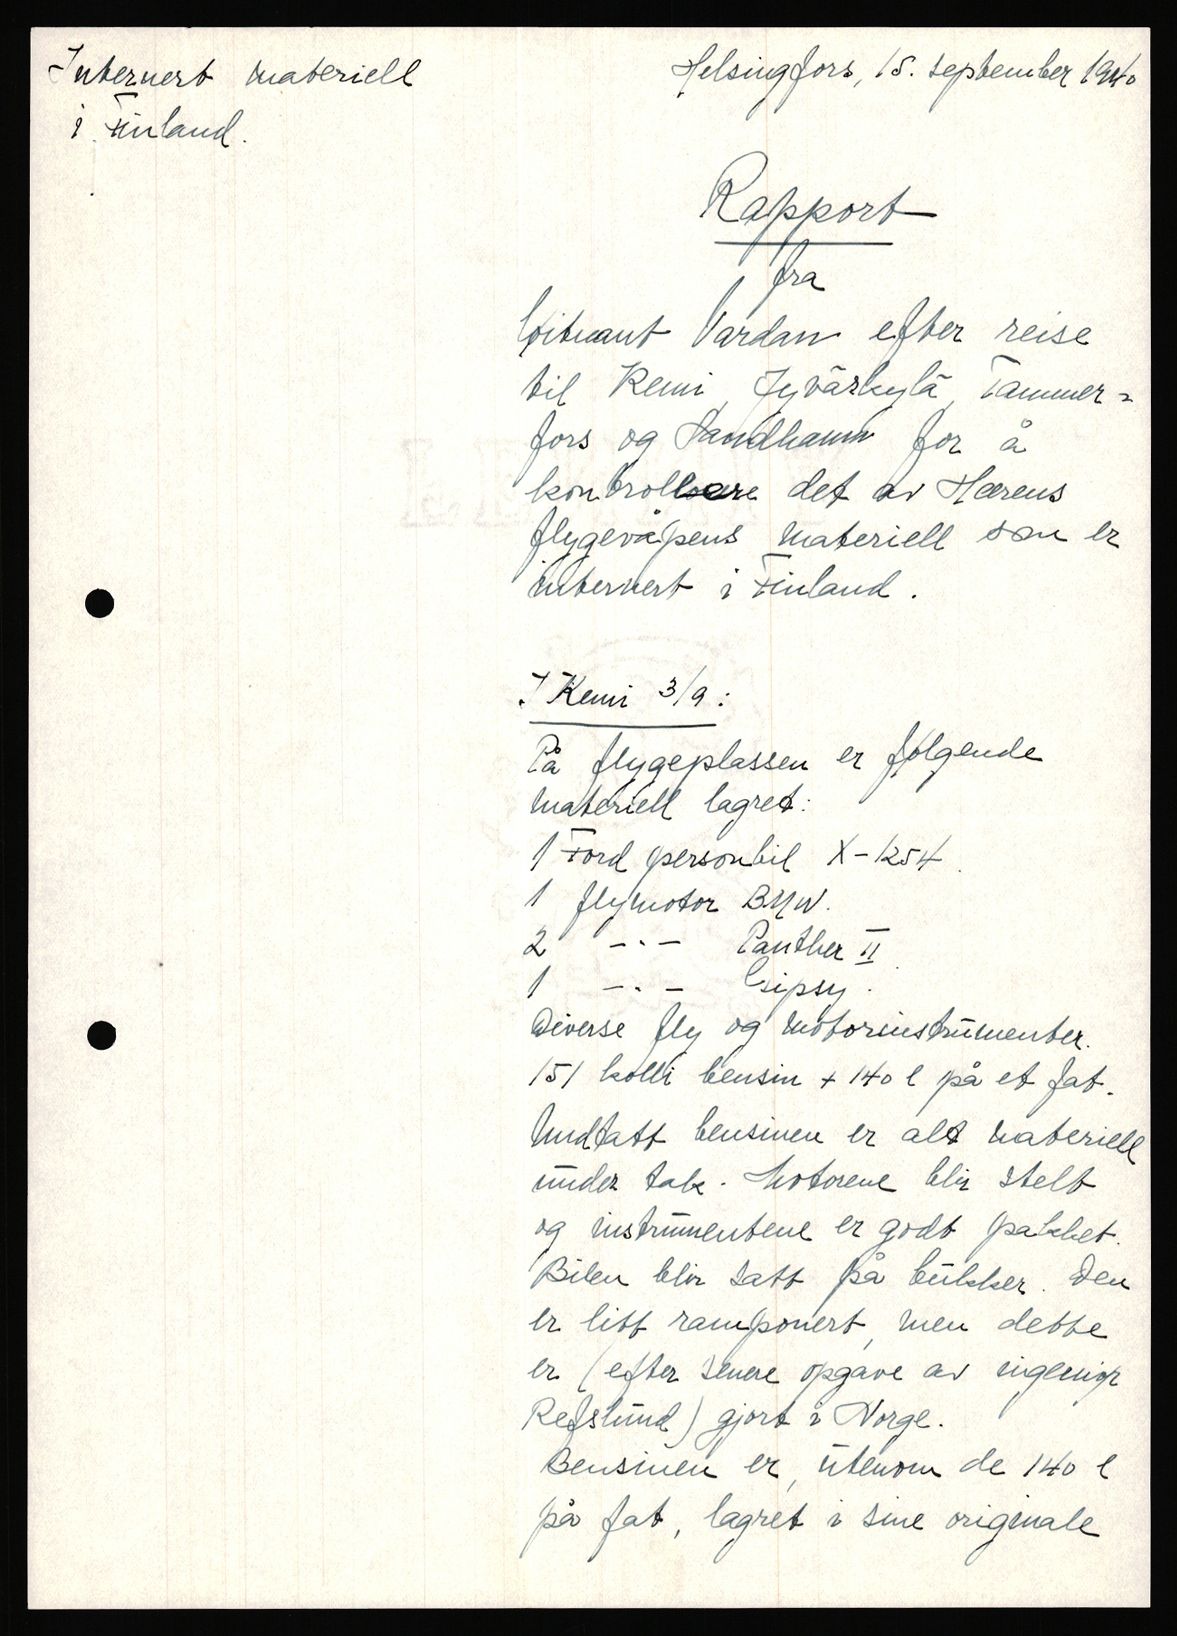 Internert materiell
i Finland.
Helsingfors, 15. september 1940
Rapport
fra
løitnant Vardan efter reise
til Kemi, Jyväskylä, Tammer-
fors og Sandhamn for å
kontrollere det av Hærens
flygevåpens materiell som er
internert i Finland.
I Kemi 3/9:
På flygeplassen er følgende
materiell lagret:
1 Ford personbil X-1254.
1 flymotor BMW.
2 -"- Panther II.
1 -"- Gipsy.
Diverse fly og motorinstrumenter.
151 kolli bensin + 140 l på et fat.
Undtatt bensinen er alt materiell
under tak. Motorene blir stelt
og instrumentene er godt pakket.
Bilen blir satt på bukker. Den
er litt ramponert, men dette
er (efter senere opgave av ingeniør
Refslund) gjort i Norge.
Bensinen er, utenom de 140 l
på fat, lagret i sine originale